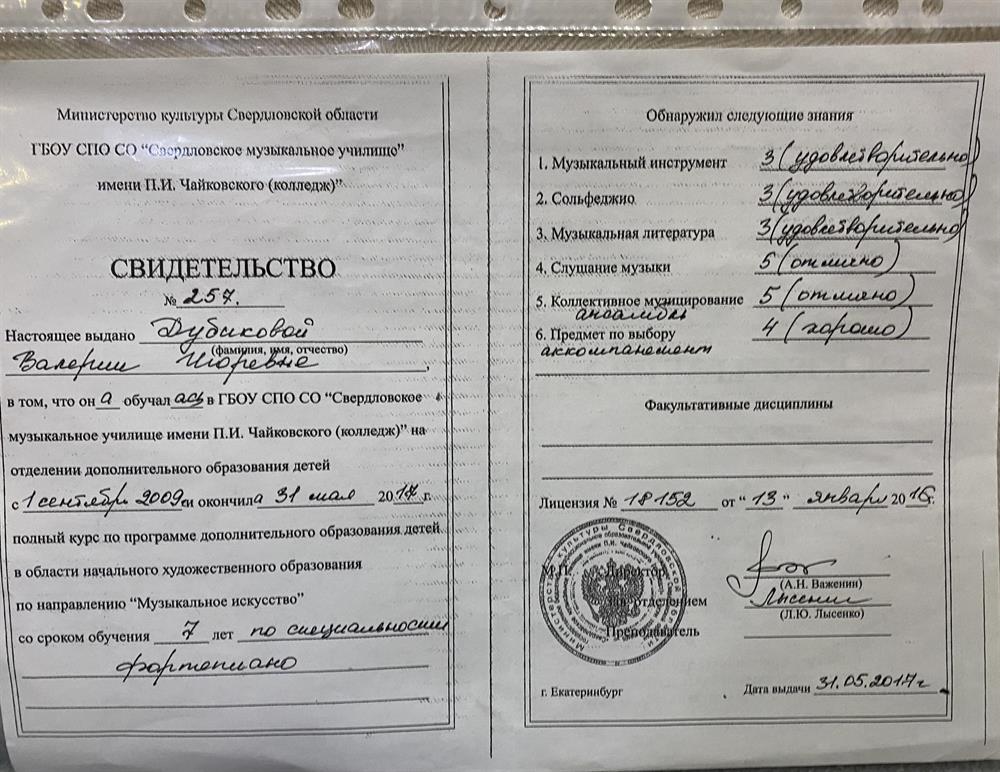 Министерство культуры Свердловской области
ГБОУ СПО СО “Свердловское музыкальное училище”
имени П.И. Чайковского (колледж)”
СВИДЕТЕЛЬСТВО
№ 257.
Настоящее выдано Дубиковой
(фамилия, имя, отчество)
Валерии Игоревне,
в том, что он а обучал ась в ГБОУ СПО СО “Свердловское
музыкальное училище имени П.И. Чайковского (колледж)” на
отделении дополнительного образования детей
с 1 сентября 2009 г. и окончил а 31 мая 2017 г.
полный курс по программе дополнительного образования детей
в области начального художественного образования
по направлению “Музыкальное искусство”
со сроком обучения 7 лет по специальности
фортепиано
Обнаружил следующие знания
1. Музыкальный инструмент 3 (удовлетворительно)
2. Сольфеджио 3 (удовлетворительно)
3. Музыкальная литература 3 (удовлетворительно)
4. Слушание музыки 5 (отлично)
5. Коллективное музицирование 5 (отлично)
ансамбль
6. Предмет по выбору 4 (хорошо)
аккомпанемент
Факультативные дисциплины
Лицензия № 18152 от “13” января 2016 г.
М.П. Директор
(А.Н. Важенин)
Зав. отделением Лысенко
(Л.Ю. Лысенко)
Преподаватель
г. Екатеринбург Дата выдачи 31.05.2017 г